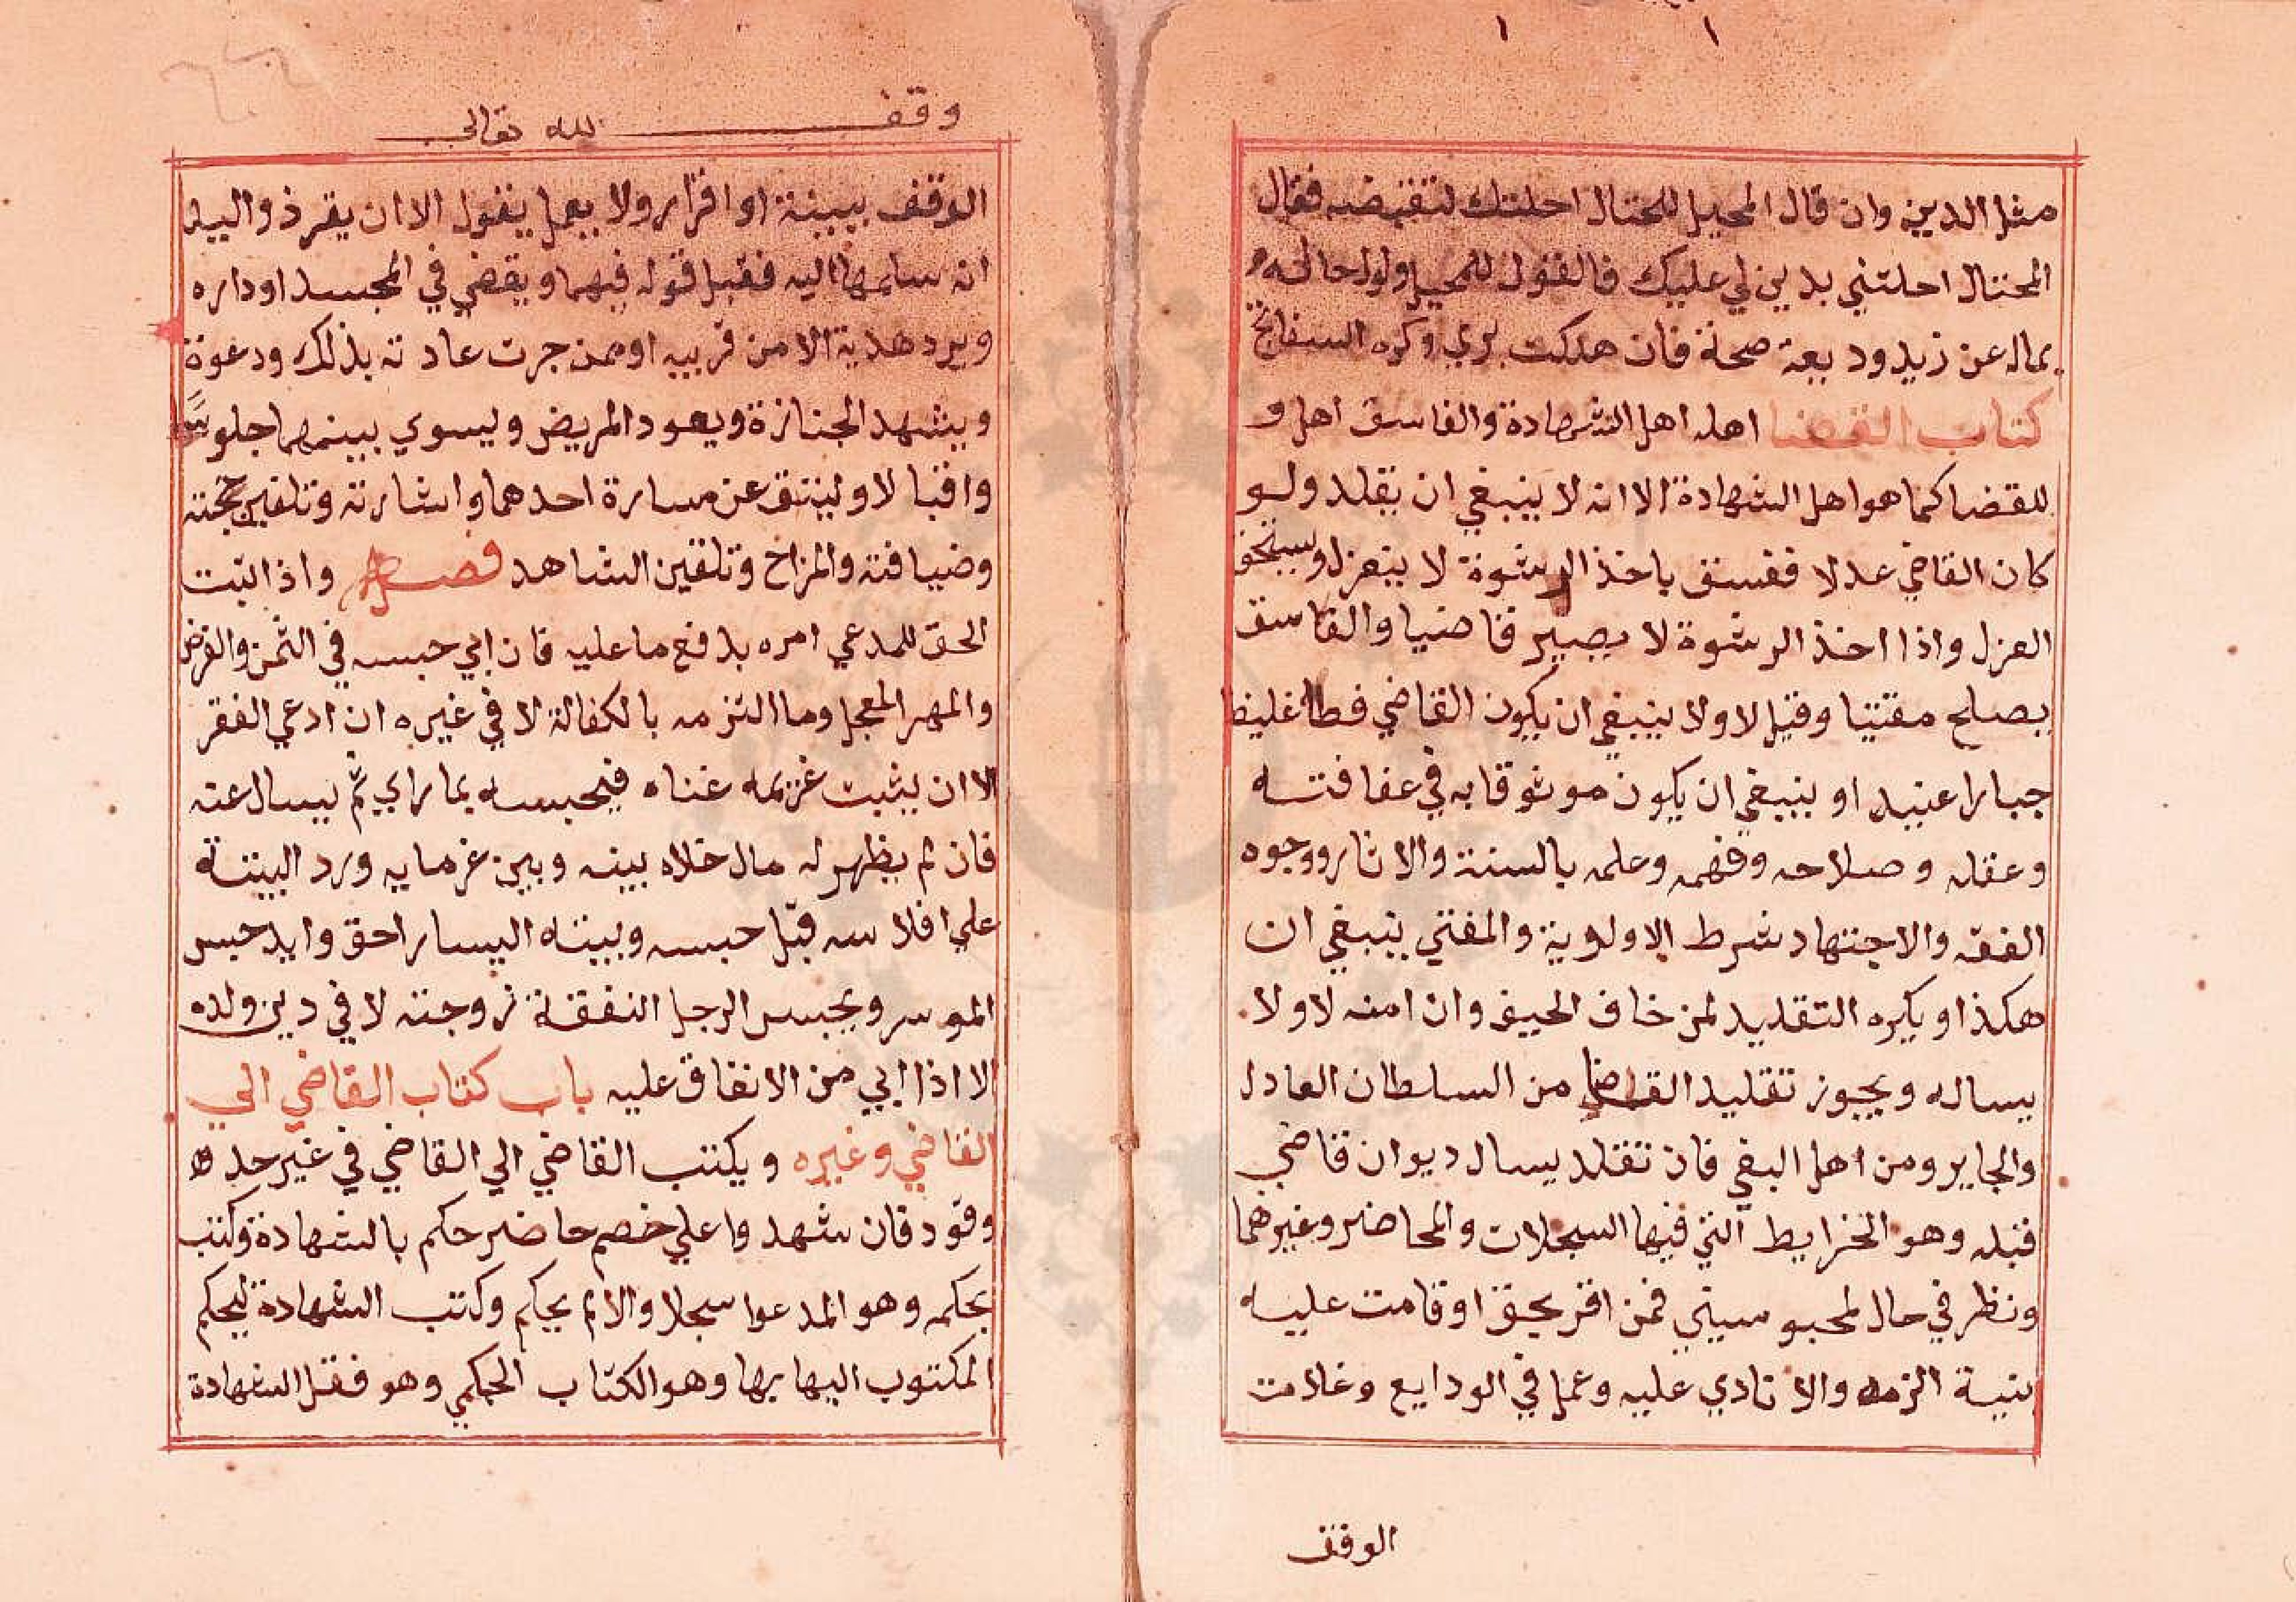 مثل الدين وان قال المحيل للمحتال احلتك لتقبضه فقال
المحتال احلتني بدين لي عليك فالقول للمحيل ولو احاله
بمال عن زيد وديعة صحة فان هلكت بري وكره السفاتج
كتاب القضا اهله اهل الشهادة والفاسق اهل و
للقضا كما هو اهل الشهادة الا انه لا ينبغي ان يقلد ولو
كان القاضي عدلا ففسق باخذ الرشوة لا ينعزل ويستحق
العزل واذا اخذ الرشوة لا يصير قاضيا والفاسق
يصلح مفتيا وقيل لا ولا ينبغي ان يكون القاضي فظا غليظا
جبارا عنيدا و ينبغي ان يكون موثوقا به في عفافته
وعقله و صلاحه وفهمه وعلمه بالسنة والاثار ووجوه
الفقه والاجتهاد شرط الاولوية والمفتي ينبغي ان
هكذا و يكره التقليد لمن خاف الحيف وان امنه لا ولا
يساله ويجوز تقليد القضا من السلطان العادل
والجاير ومن اهل البغي فان تقلد يسال ديوان قاضي
قبله وهو الخرايط التي فيها السجلات والمحاضر وغيرهما
ونظر في حال لمحبو سيني فمن اقر بحق او قامت عليه
بنية الزمه والا نادي عليه وعمل في الودايع وغلات
الوقف
وقف لله تعالى
الوقف ببينة او اقرار ولا يعمل يقول الا ان يقر ذو اليد
انه سلمها اليه فقبل قوله فيهما ويقضي في المجسد او داره
ويرد هدية الا من قريبه او ممن جرت عادته بذلك ودعوة
ويشهد الجنازة ويعود المريض وليسوي بينهما جلوسا
واقبالا ولينتق عن مسارة احدهما واشارته وتلقين حجته
وضيافته والمزاح وتلقين الشاهد فصل واذا اثبت
الحق للمدعي امره بدفع ما عليه فان ابي حبسه في الثمن والقرض
والمهر المعجل وما التزمه بالكفالة لا في غيره ان ادعي الفقر
الا ان يثبت غريمه غناه فيحبسه بما راي ثم يسال عنه
فان لم يظهر له مال خلاه بينه وبين غرمايه ورد البينة
علي افلاسه قبل حبسه وبينة اليسار احق وابد حبس
الموسر ويحبس الرجل النفقة زوجته لا في دين ولده
الا اذا ابي من الانفاق عليه باب كتاب القاضي الي
القاضي وغيره ويكتب القاضي الي القاضي في غير حد و
وقود فان شهدوا علي خصم حاضر حكم بالشهادة وكتب
بحكمه وهو المدعوا سجلا والا لم يحكم وكتب الشهادة ليحكم
المكتوب اليها بها وهو الكتاب الحكمي وهو فقل الشهادة